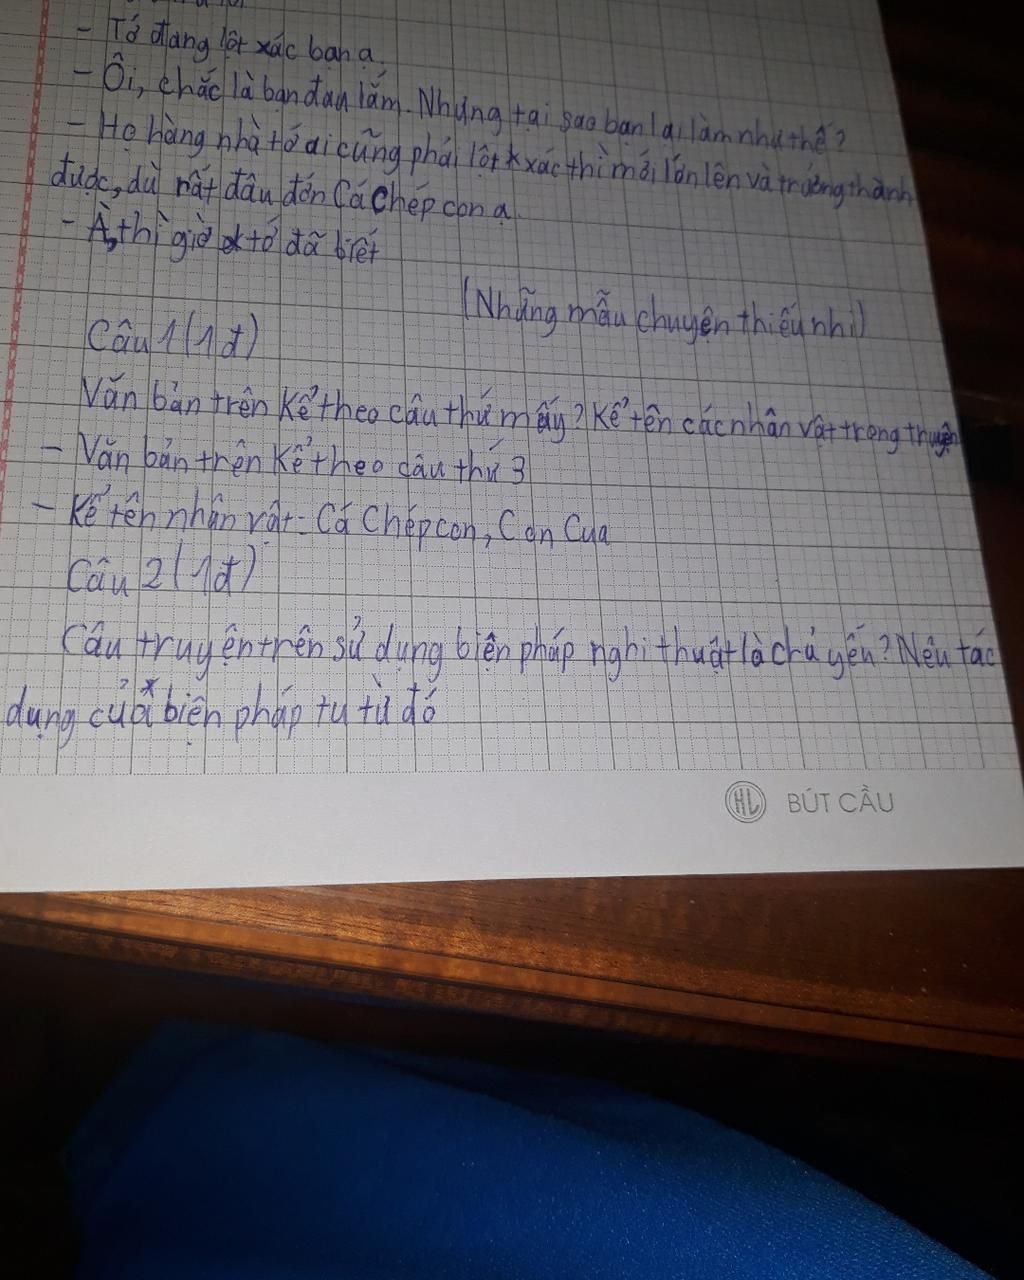 - Tớ đang lột xác bạn ạ.
- Ôi, chắc là bạn đau lắm. Nhưng tại sao bạn lại làm như thế?
- Họ hàng nhà tớ ai cũng phải lột xác thì mới lớn lên và trưởng thành
được, dù rất đâu đớn Cá chép con ạ.
- À, thì giờ tớ đã biết
(Những mẫu chuyện thiếu nhi)
Câu 1 (1đ)
Văn bản trên kể theo câu thứ mấy? Kể tên các nhân vật trong truyện
- Văn bản trên kể theo câu thứ 3
- Kể tên nhân vật: Cá Chép con, Con Cua
Câu 2 (1đ)
Câu truyện trên sử dụng biện pháp nghị thuật là chủ yếu? Nêu tác
dụng của biện pháp tu từ đó
HL BÚT CẦU